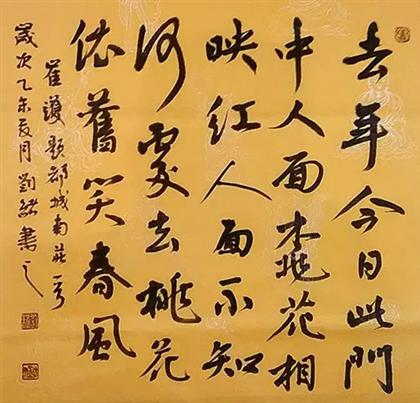 去年今日此門
中人面桃花相
映红人面不知
何處去桃花
依舊笑春風
崔護題都城南莊一首
歲次乙未夏月劉
書之